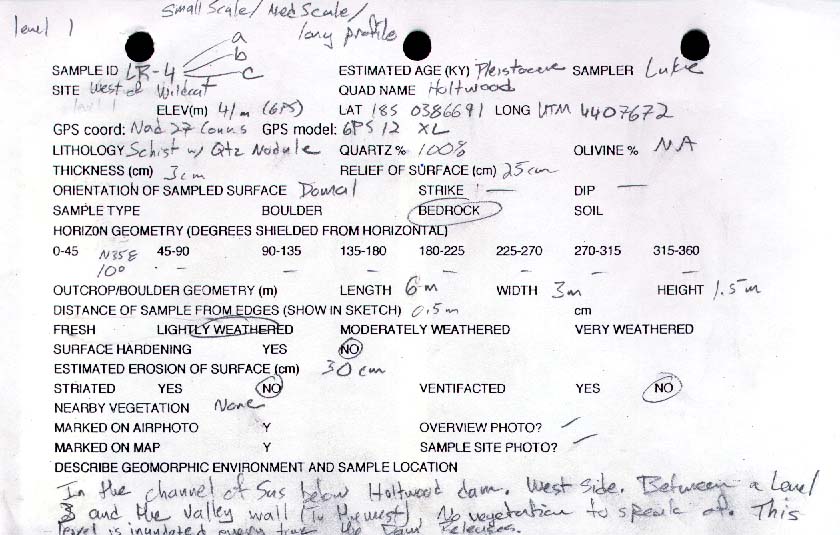 level 1
Small Scale/ Med Scale/
long profile
a
b
c
SAMPLE ID LR-4 ESTIMATED AGE (KY) Pleistocene SAMPLER Luke
SITE West of Wildcat QUAD NAME Holtwood
level 1
ELEV(m) 41m (GPS) LAT 18S 0386691 LONG UTM 4407672
GPS coord: Nad 27 Conus GPS model: GPS 12 XL
LITHOLOGY Schist w/ Qtz Nodule QUARTZ % 100% OLIVINE % NA
THICKNESS (cm) 3cm RELIEF OF SURFACE (cm) 25cm
ORIENTATION OF SAMPLED SURFACE Domal STRIKE — DIP —
SAMPLE TYPE BOULDER BEDROCK SOIL
HORIZON GEOMETRY (DEGREES SHIELDED FROM HORIZONTAL)
0-45 N35E 45-90 90-135 135-180 180-225 225-270 270-315 315-360
10° – – – – – – –
OUTCROP/BOULDER GEOMETRY (m) LENGTH 6m WIDTH 3m HEIGHT 1.5m
DISTANCE OF SAMPLE FROM EDGES (SHOW IN SKETCH) 0.5m cm
FRESH LIGHTLY WEATHERED MODERATELY WEATHERED VERY WEATHERED
SURFACE HARDENING YES NO
ESTIMATED EROSION OF SURFACE (cm) 30 cm
STRIATED YES NO VENTIFACTED YES NO
NEARBY VEGETATION None
MARKED ON AIRPHOTO Y OVERVIEW PHOTO?
MARKED ON MAP Y SAMPLE SITE PHOTO?
DESCRIBE GEOMORPHIC ENVIRONMENT AND SAMPLE LOCATION
In the channel of Sus below Holtwood dam. West side. Between a Level
3 and the valley wall (To the west) No vegetation to speak of. This
level is inundated every time the Dam Releases.